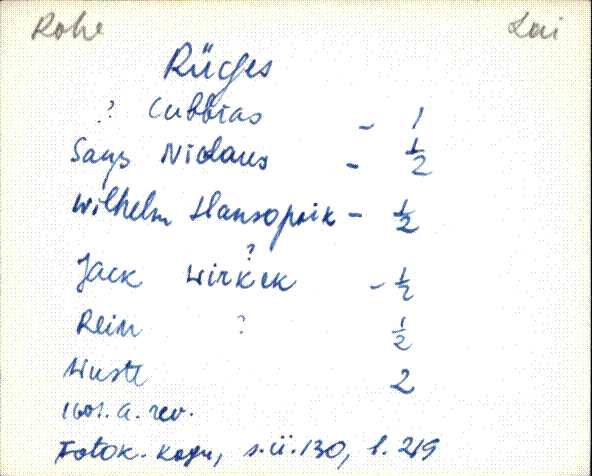 Rohe Lai
Rüges
? Cubbias - 1
Says Niclaus - 1/2
Wilhelm Hansopoik - 1/2
?
Jack Wirkek - 1/2
Rein ? 1/2
Wuste 2
1601. a. rev.
Fotok. kogu, s.ü. 130, l. 219